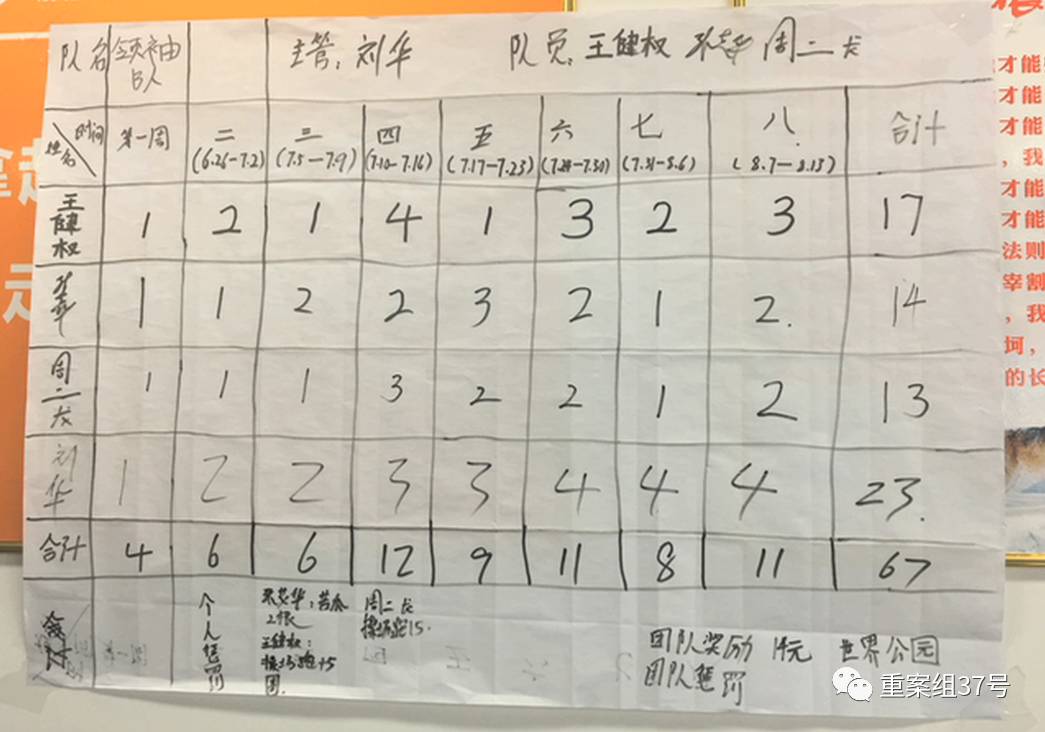 队名 领袖 主管：刘华 队员：王健权 周二龙
B人
时间 第一周 二 三 四 五 六 七 八 合计
姓名 (6.26-7.2) (7.5-7.9) (7.10-7.16) (7.17-7.23) (7.24-7.30) (7.31-8.6) (8.7-8.13)
王健权 1 2 1 4 1 3 2 3 17
1 1 2 2 3 2 1 2. 14
周二龙 1 1 1 3 2 2 1 2 13
刘华 1 2 2 3 3 4 4 4 23.
合计 4 6 6 12 9 11 8 11 67
个人惩罚
苦瓜
2根
王健权：
操场跑15
圈.
周二龙
操场跑15.
团队奖励 14元 世界公园
团队惩罚
重案组37号
才能
才能
才能
，我
才能
才能
法则
宰割
，我
坷，
的长